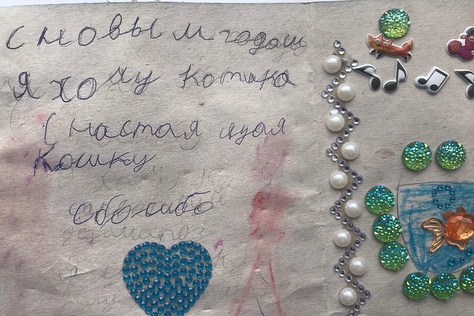 с новым годом
я хочу котика
(настоя ящая
кошку
сбасибо